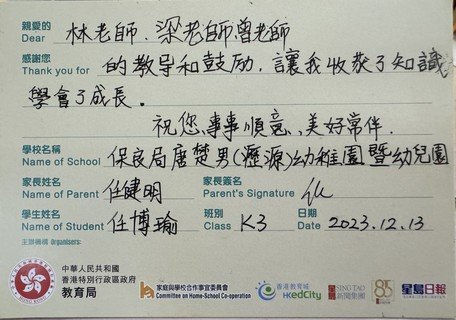 親愛的
Dear 林老師、梁老師、曾老師
感謝您
Thank you for 的教导和鼓励，讓我收获了知識
學會了成長。
祝您，事事順意、美好常伴.
學校名稱
Name of School 保良局唐楚男(瀝源)幼稚園暨幼兒園
家長姓名 家長簽名
Name of Parent 任健明 Parent's Signature
學生姓名 班別 日期
Name of Student 任博瑜 Class K3 Date 2023.12.13
主辦機構 Organisers:
中華人民共和國
香港特別行政區政府
教育局
家庭與學校合作事宜委員會
Committee on Home-School Co-operation
香港教育城
HKedCity
SING TAO
新聞集團
85
星島日報